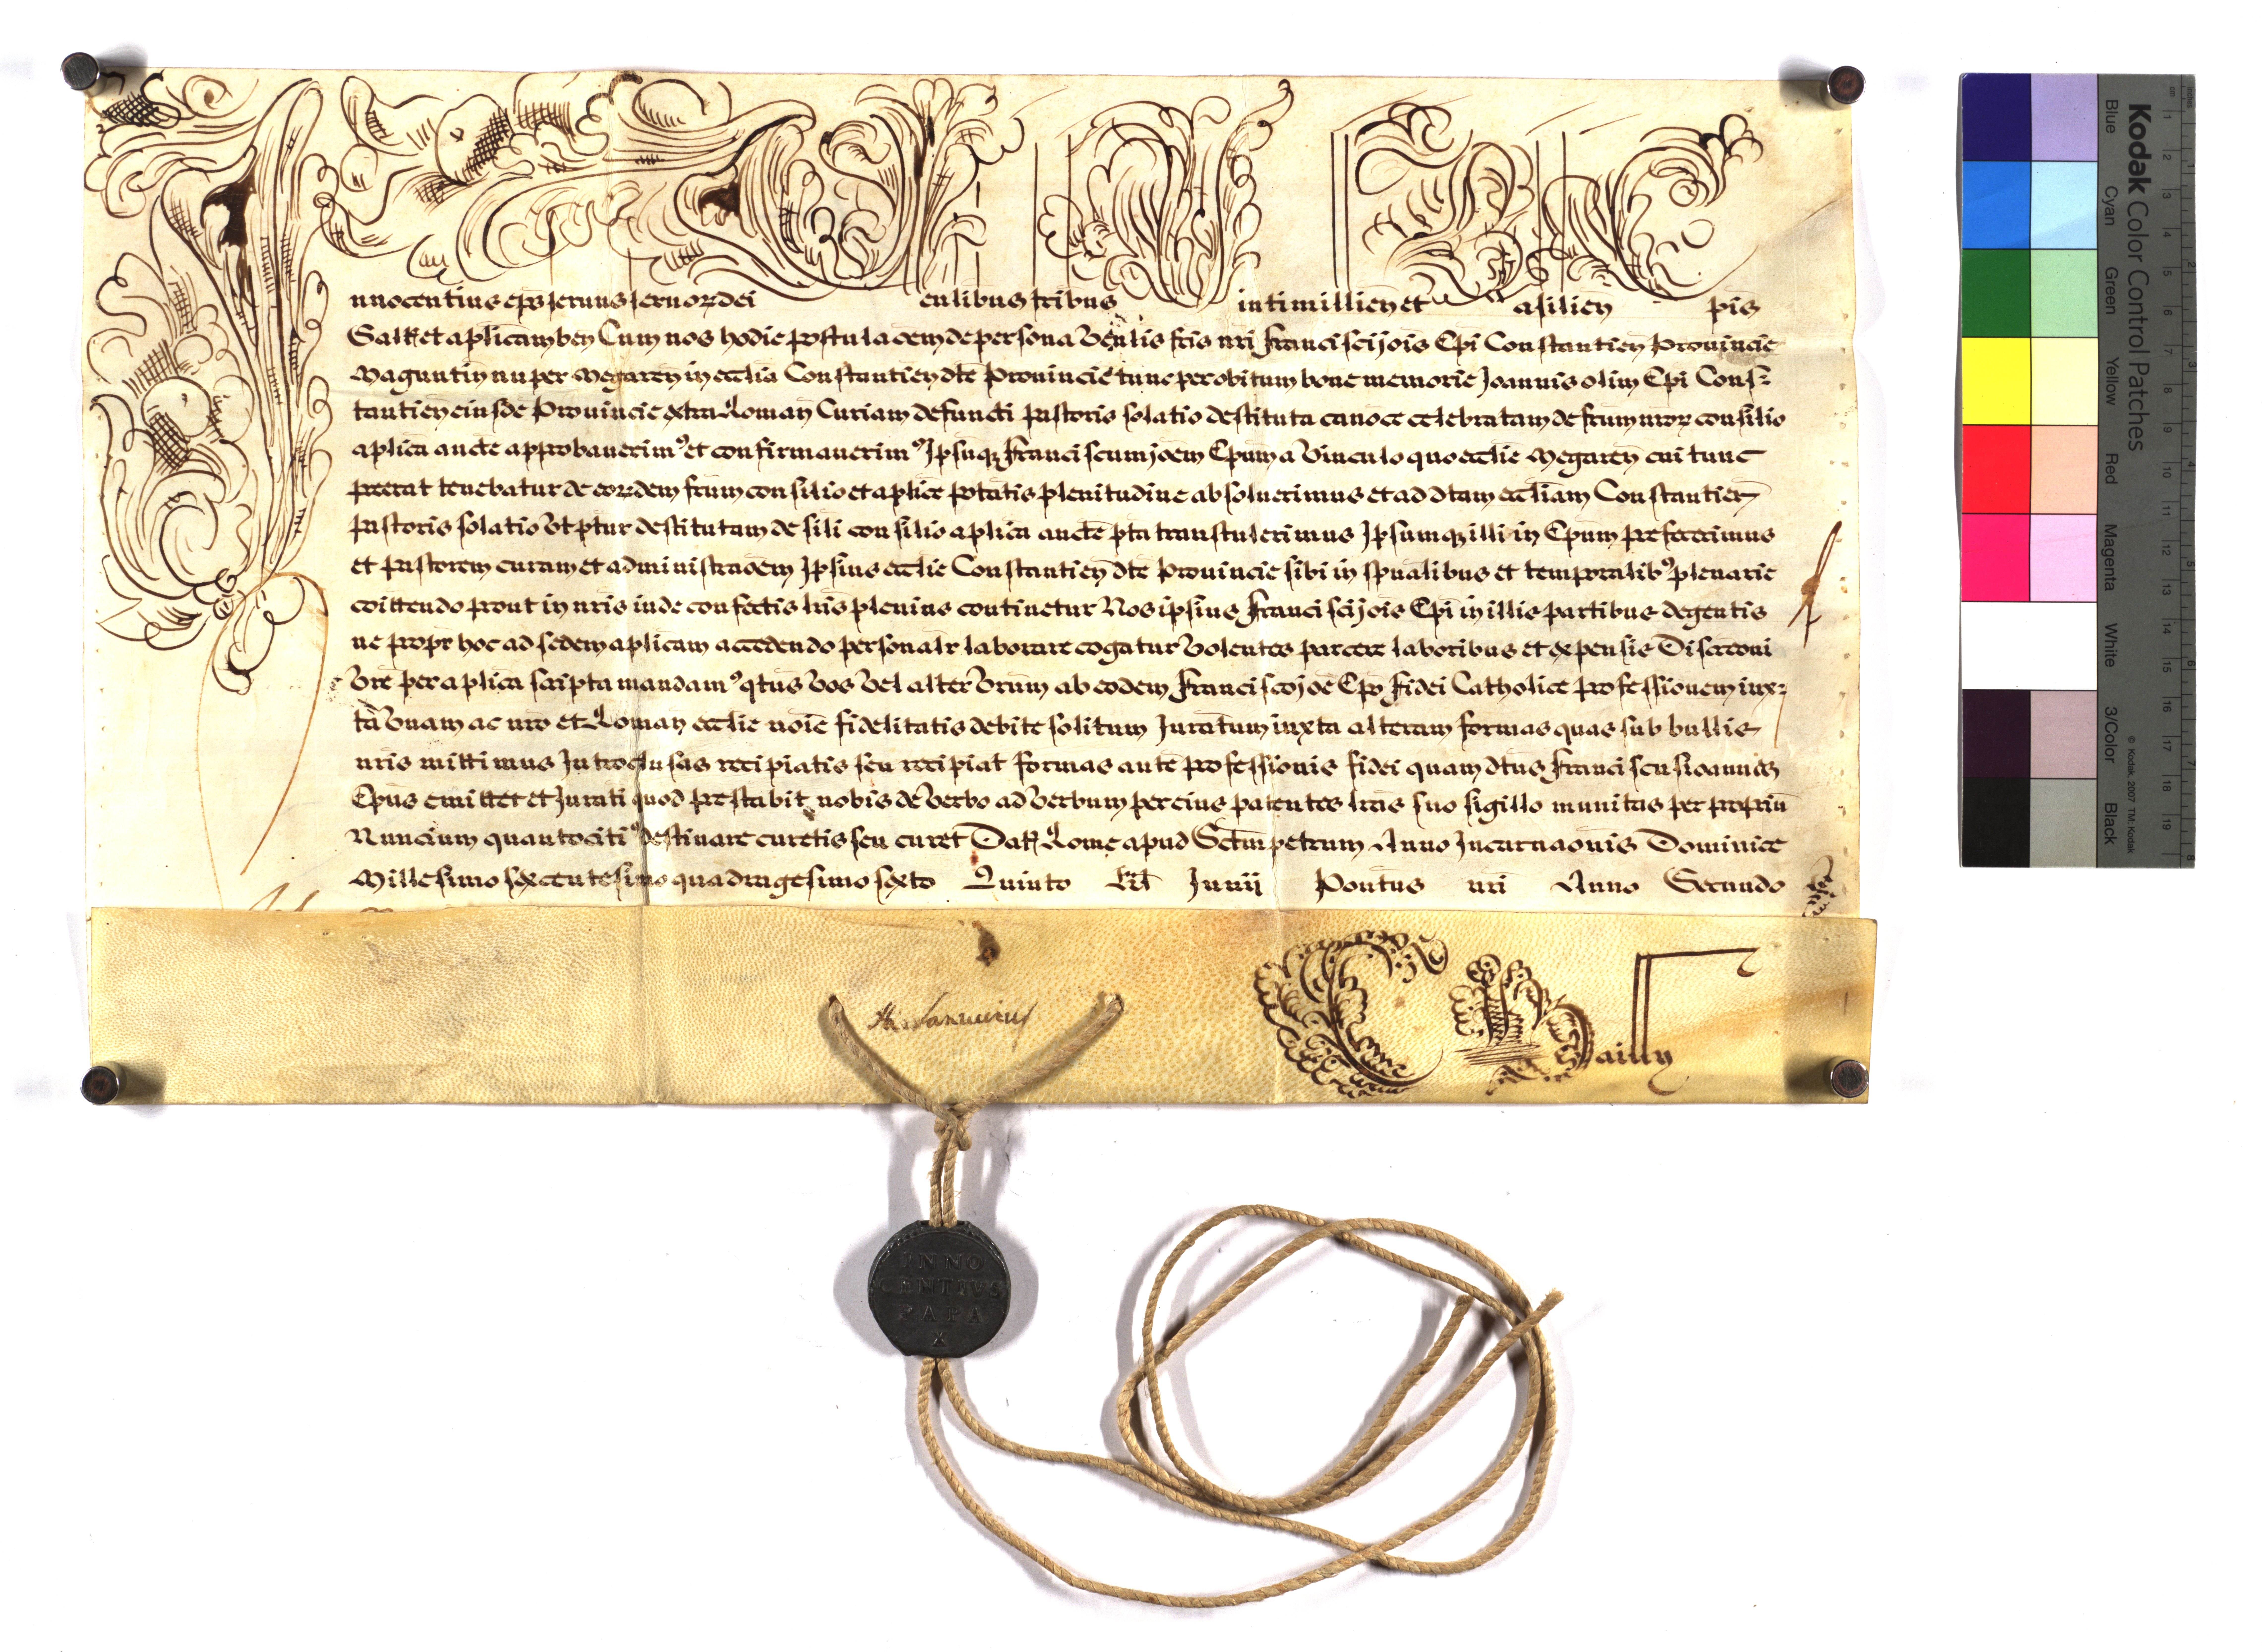 Innocentius eps seruus seruoȝ dei Uenlibus fribus Uintimillien̄ et Basilien̄ Epis
Salt̄ et aplicam ben̄ Cum nos hodie postulacem̄ de persona Ven̄lis fris nri Francisci jois Epi Constantien̄ Prouincie
Maguntin̄ nuper Megaren̄ in ecclia Constantien̄ dte Prouincie tunc per obitum bone memorie Joannis olim Epi Cons=
tantien̄ eiusde Prouincie extra Roman̄ Curiam defuncti Pastoris solatio destituta canoce celebratam de frum nroȝ consilio
aplica aucte approbauerimꝰ et confirmauerimꝰ Ipsuqȝ Franciscum joem Epum a Vinculo quo ecclie Megaren̄ cui tunc
preerat tenebatur de eoȝdem frum consilio et aplice ptatis plenitudine absoluerimus et ad dtam eccliam Constantien̄
Pastoris solatio Vt ptur destitutam de sili consilio aplica aucte pta transtulerimus Ipsumqȝ illi in Epum prefecerimus
et Pastorem curam et administraoem Ipsius ecclie Constantien̄ dte Prouincie sibi in spualibus et temporalibꝰ plenarie
coittendo prout in nris inde confectis lris plenius continetur Nos ipsius Francisci jois Epi in illis partibus degentis
ne propr hoc ad sedem aplicam accedendo personalr laborare cogatur Volentes parcere laboribus et expensis Discreoni
Vre per aplica scripta mandamꝰ qtus Vos Vel alter Vrum ab eodem Francisco joe Epo Fidei Catholice professionem iux=
ta Vnam ac nro et Roman̄ ecclie noie fidelitatis debite solitum Juratum iuxta alteram formas quas sub bullis
nris mittimus Introclusas recipiatis seu recipiat formas aute professionis fidei quam dtus Franciscus ioannes
Epus emittet et Jurati quod prestabit nobis de Verbo ad Verbum per eius patentes lras suo sigillo munitas per propriu
Nuncium quantocitiꝰ destinare curetis seu curet Dat̄ Rome apud Sctm petrum Anno Incarnaonis Dominice
Millesimo sexcentesimo quadragesimo sexto Quinto Kl Junij Pontus nri Anno Secundo
INNO
CENTIVS
PAPA
X
Kodak Color Control Patches
Blue
Cyan
Green
Yellow
Red
Magenta
White
3/Color
Black
© Kodak, 2007 TM: Kodak
inches
cm
1 2 3 4 5 6 7 8 9 10 11 12 13 14 15 16 17 18 19
1 2 3 4 5 6 7 8